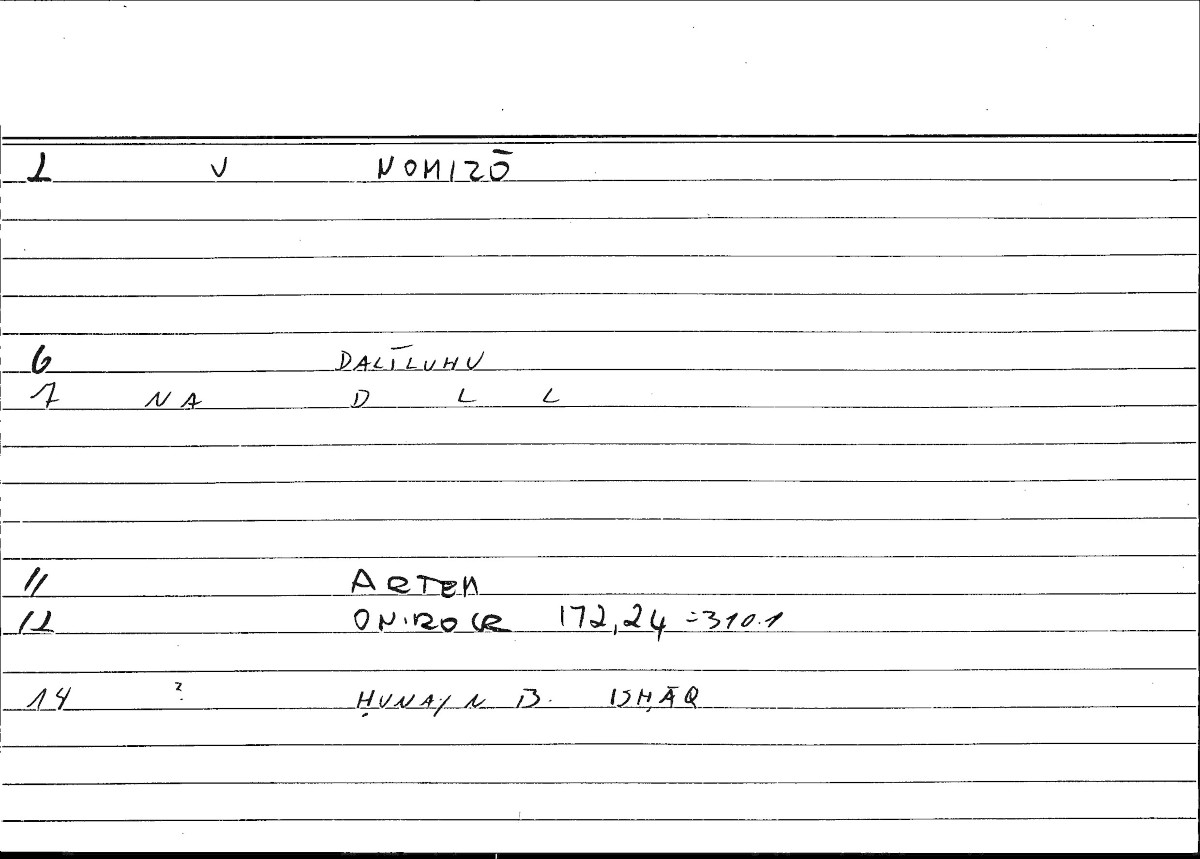 1 V NOMIZŌ
6 DALĪLUHU
7 NA D L L
11 ARTEM
12 ONIROCR 172,24 =310.1
14 ? ḤUNAYN B. ISḤĀQ